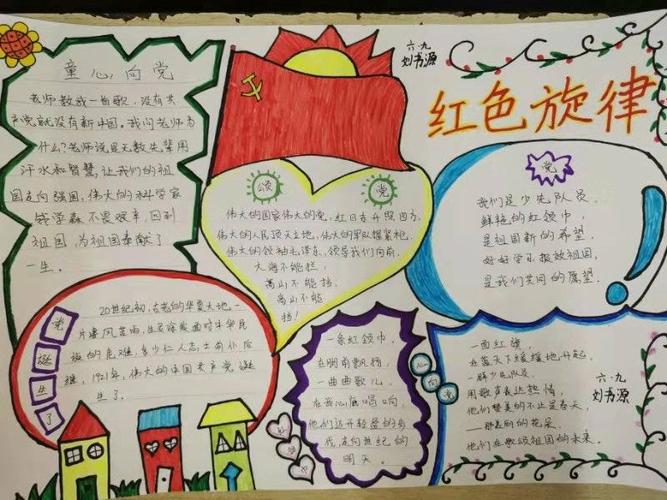 童心向党
老师教我一首歌,没有共
产党就没有新中国。我问老师为
什么?老师说是无数先辈用
汗水和智慧,让我们的祖
国走向强国,伟大的科学家
钱学森不畏艰辛,回到
祖国,为祖国奉献了
一生。
六.九
刘书源
红色旋律
颂 党
伟大的国家伟大的党,红日东升照四方,
伟大的人民顶天立地,伟大的军队握紧枪,
伟大的领袖毛泽东,领导我们向前。
大海不能拦,
高山不能挡,
高山不能
挡!
党
我们是少先队员,
鲜艳的红领巾,
是祖国新的希望,
好好学习报效祖国,
是我们共同的愿望。
党诞生了
20世纪初,古老的华夏大地,一
片凄风苦雨,
族的危难,多少仁人志士前仆后
继,1921年,伟大的中国共产党诞
生了。
一条红领巾,
在胸前飘扬,
一曲曲歌儿,
在我心底唱响,
他们迈开轻盈的步
伐,走向世纪的
明天。
心向党
一面红旗,
在蓝天下缓缓地升起,
一群少先队员,
用歌声表达热情,
他们赞美的不止是春天,
他们在歌颂祖国的未来。
六.九
刘书源